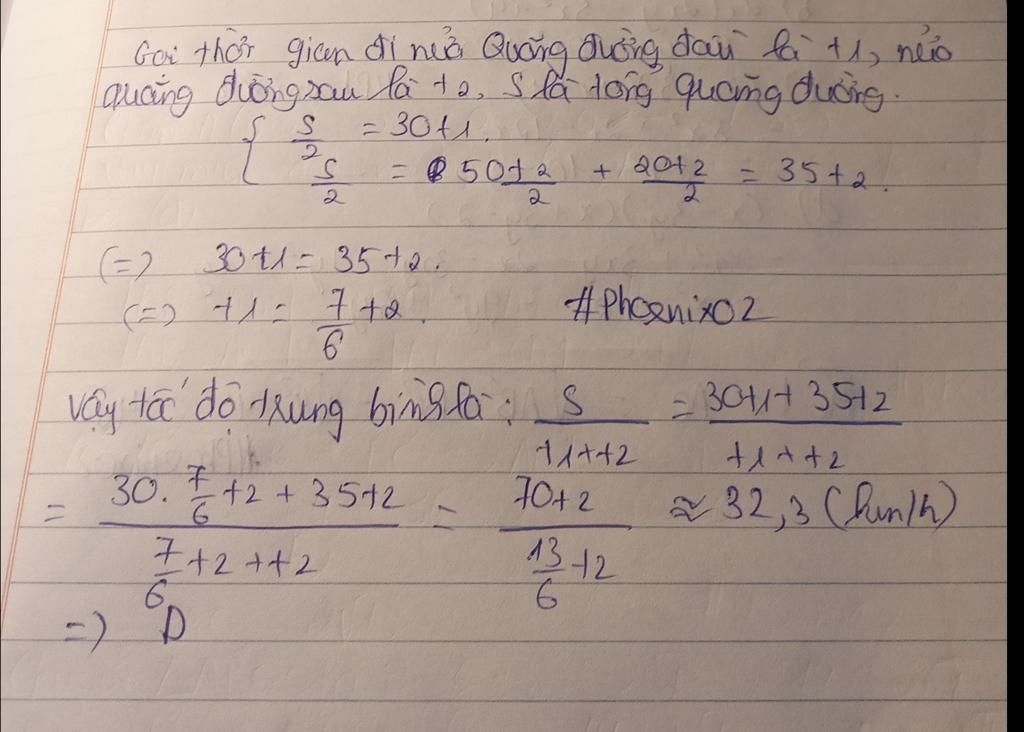 Gọi thời gian đi nửa Quãng đường đầu là t1, nửa
quãng đường sau là t2, S là tổng quãng đường.
{ S/2 = 30t1.
S/2 = 50t2/2 + 20t2/2 = 35t2.
(=) 30t1 = 35t2.
(=) t1 = 7/6 t2. #Phoenix02
Vậy tốc độ trung bình là: S/(t1+t2) = (30t1+35t2)/(t1+t2)
= (30. 7/6 t2 + 35t2)/(7/6 t2 + t2) = 70t2/(13/6 t2) ≈ 32,3 (km/h)
=) D